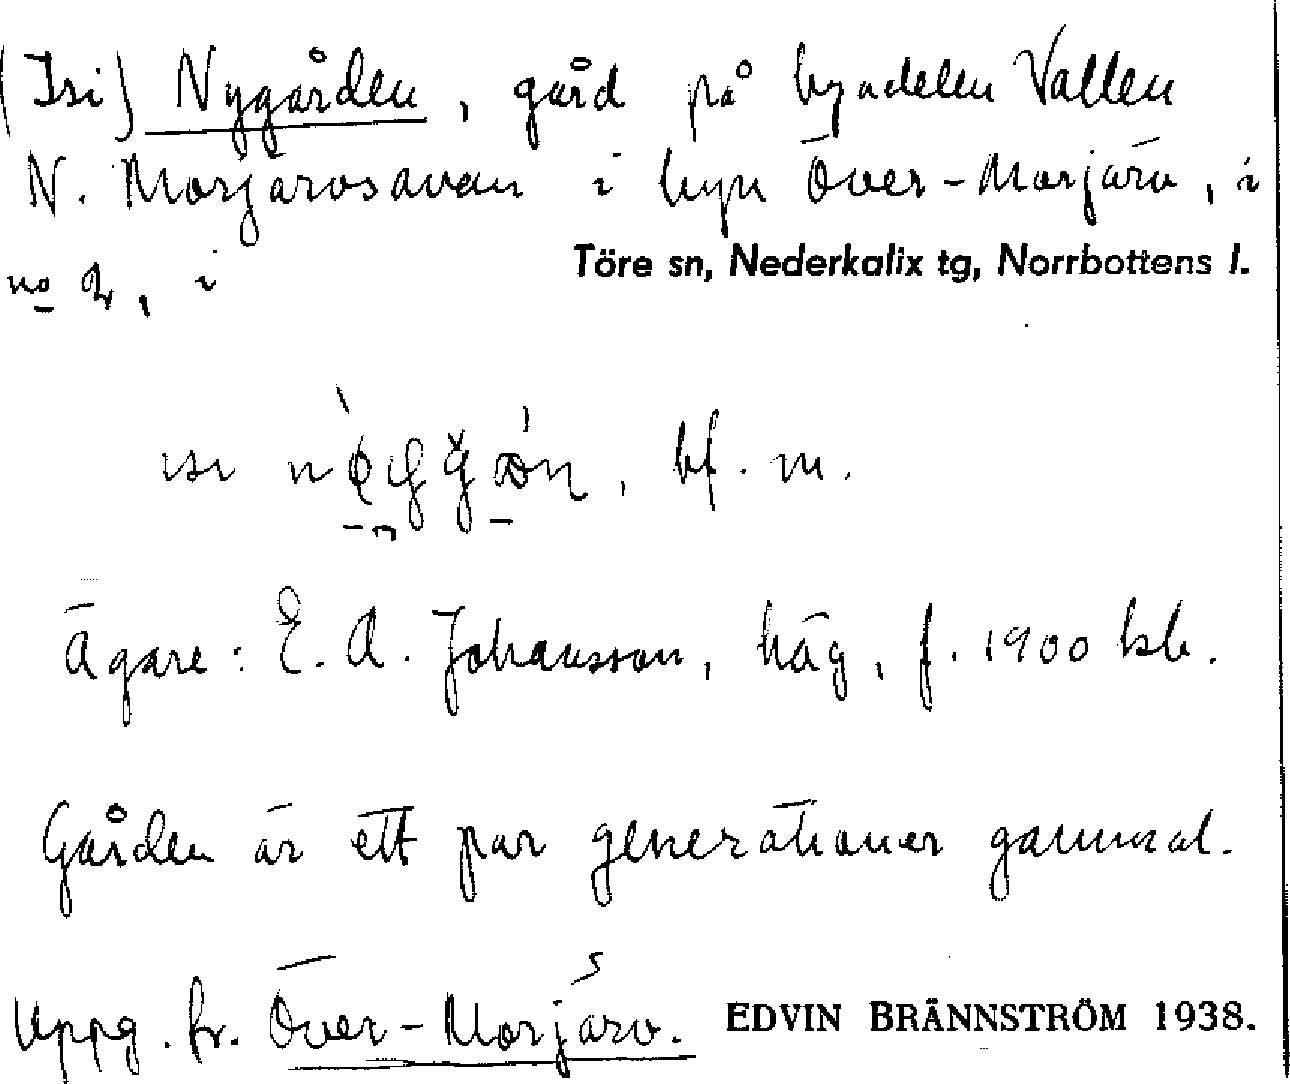 (Isi) Nygården, gård på byadelen Vallen
N. Morjärvsavan i byn Över-Morjärv, i
no 2, i Töre sn, Nederkalix tg, Norrbottens l.
isi , bf. m.
Ägare: E. A. Johansson, häg, f. 1900 hb.
Gården är ett par generationer gammal.
Uppg. fr. Över-Morjärv. EDVIN BRÄNNSTRÖM 1938.